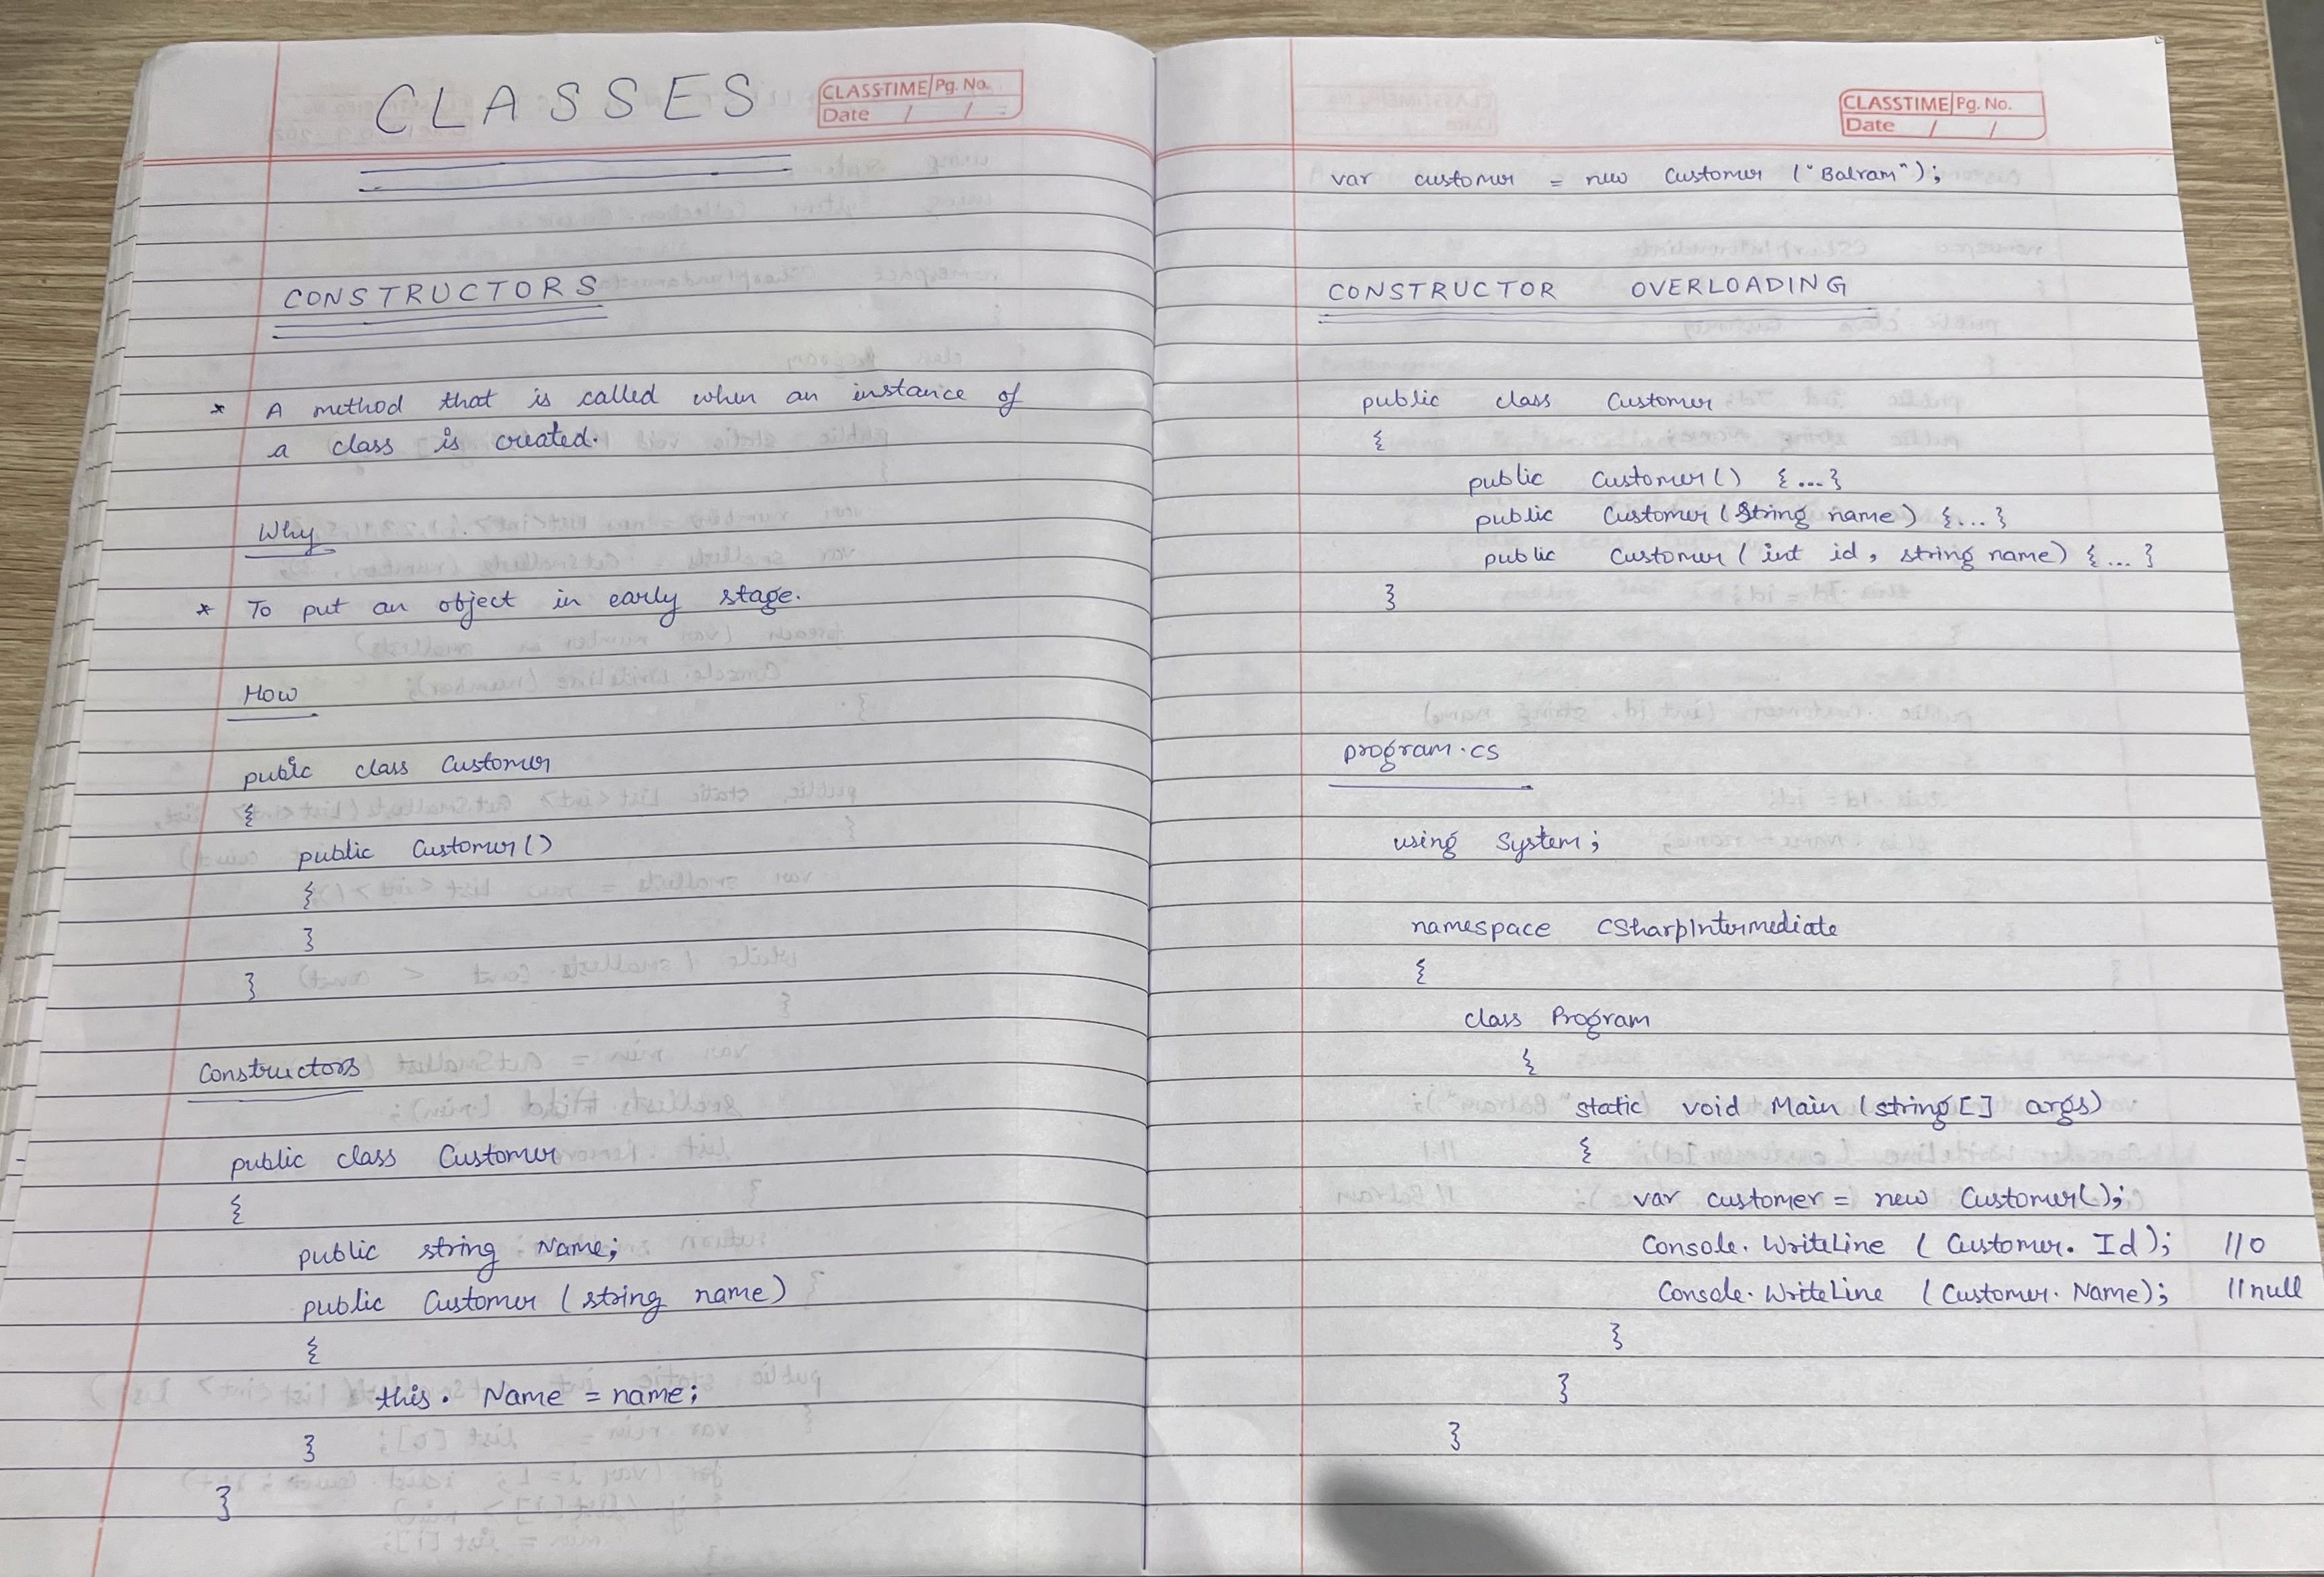 CLASSES
CLASSTIME Pg. No.
Date / /
CONSTRUCTORS
* A method that is called when an instance of
a class is created.
Why
* To put an object in early stage.
How
public class Customer
{
public Customer()
{
}
}
Constructors
public class Customer
{
public string Name;
public Customer (string name)
{
this. Name = name;
}
}
CLASSTIME Pg. No.
Date / /
var customer = new Customer ("Balram");
CONSTRUCTOR OVERLOADING
public class Customer
{
public Customer() {...}
public Customer (String name) {...}
public Customer (int id, string name) {...}
}
program.cs
using System;
namespace CSharpIntermediate
{
class Program
{
static void Main (string[] args)
{
var customer = new Customer();
Console. WriteLine (Customer. Id); //0
Console. WriteLine (Customer. Name); //null
}
}
}